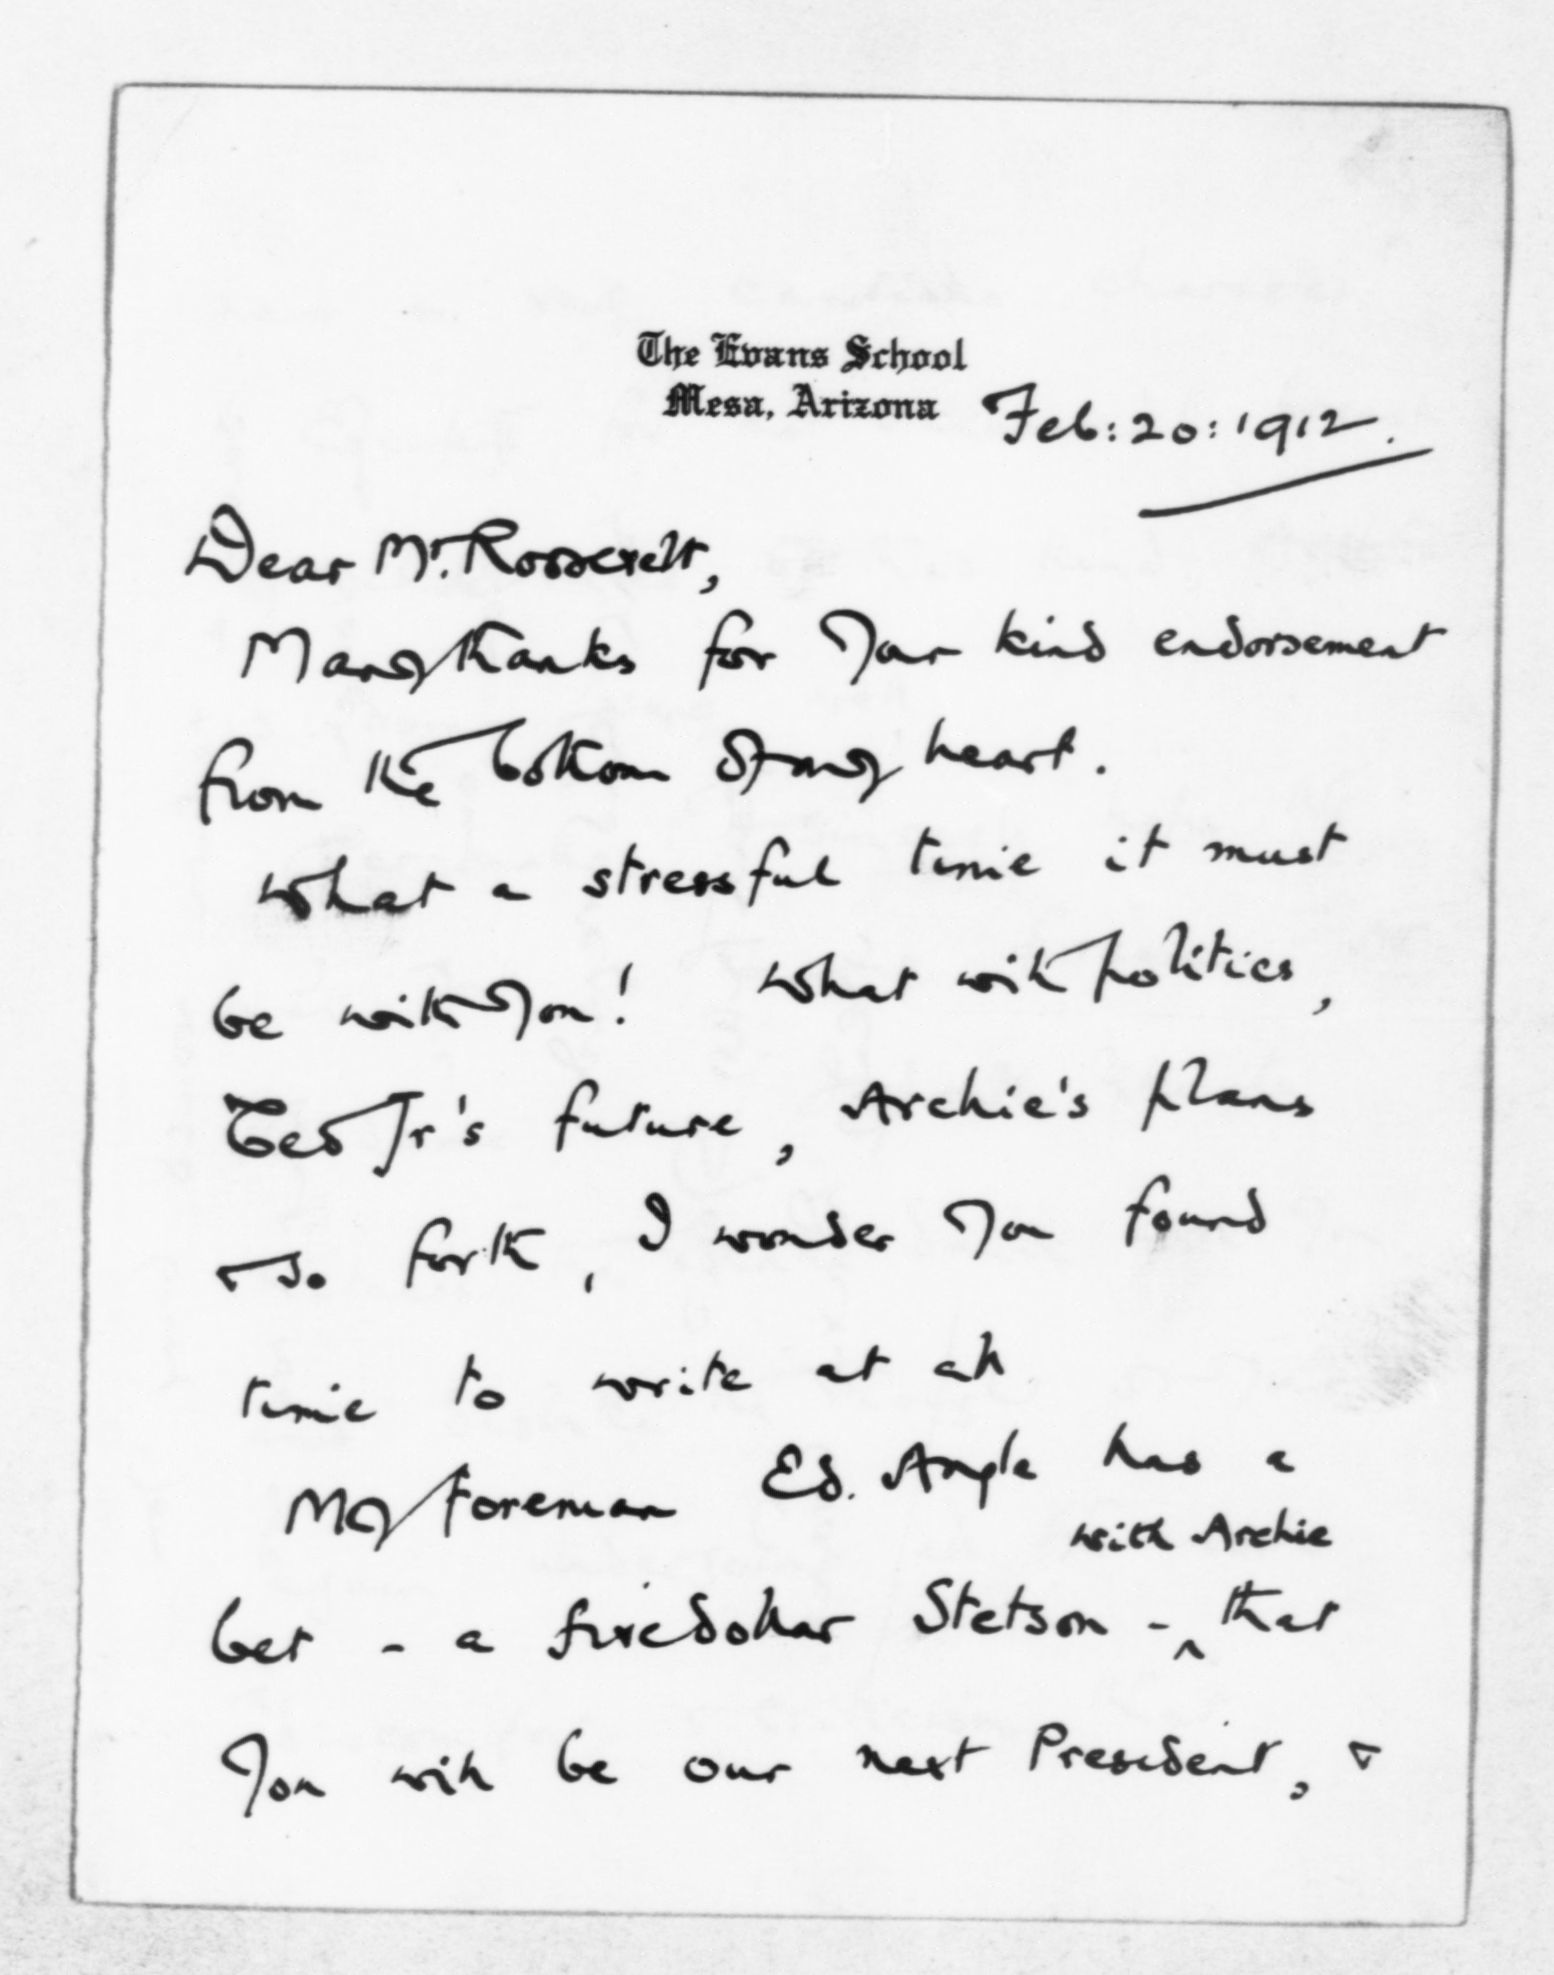 The Evans School
Mesa, Arizona
Feb: 20: 1912.
Dear Mr. Roosevelt,
Many thanks for your kind endorsement
from the bottom of my heart.
What a stressful time it must
be with you! What with politics,
Ted Jr's future, Archie's plans
& so forth, I wonder you found
time to write at all
My foreman Ed. Angle has a
with Archie
bet - a five dollar Stetson - ^ that
you will be our next President, &